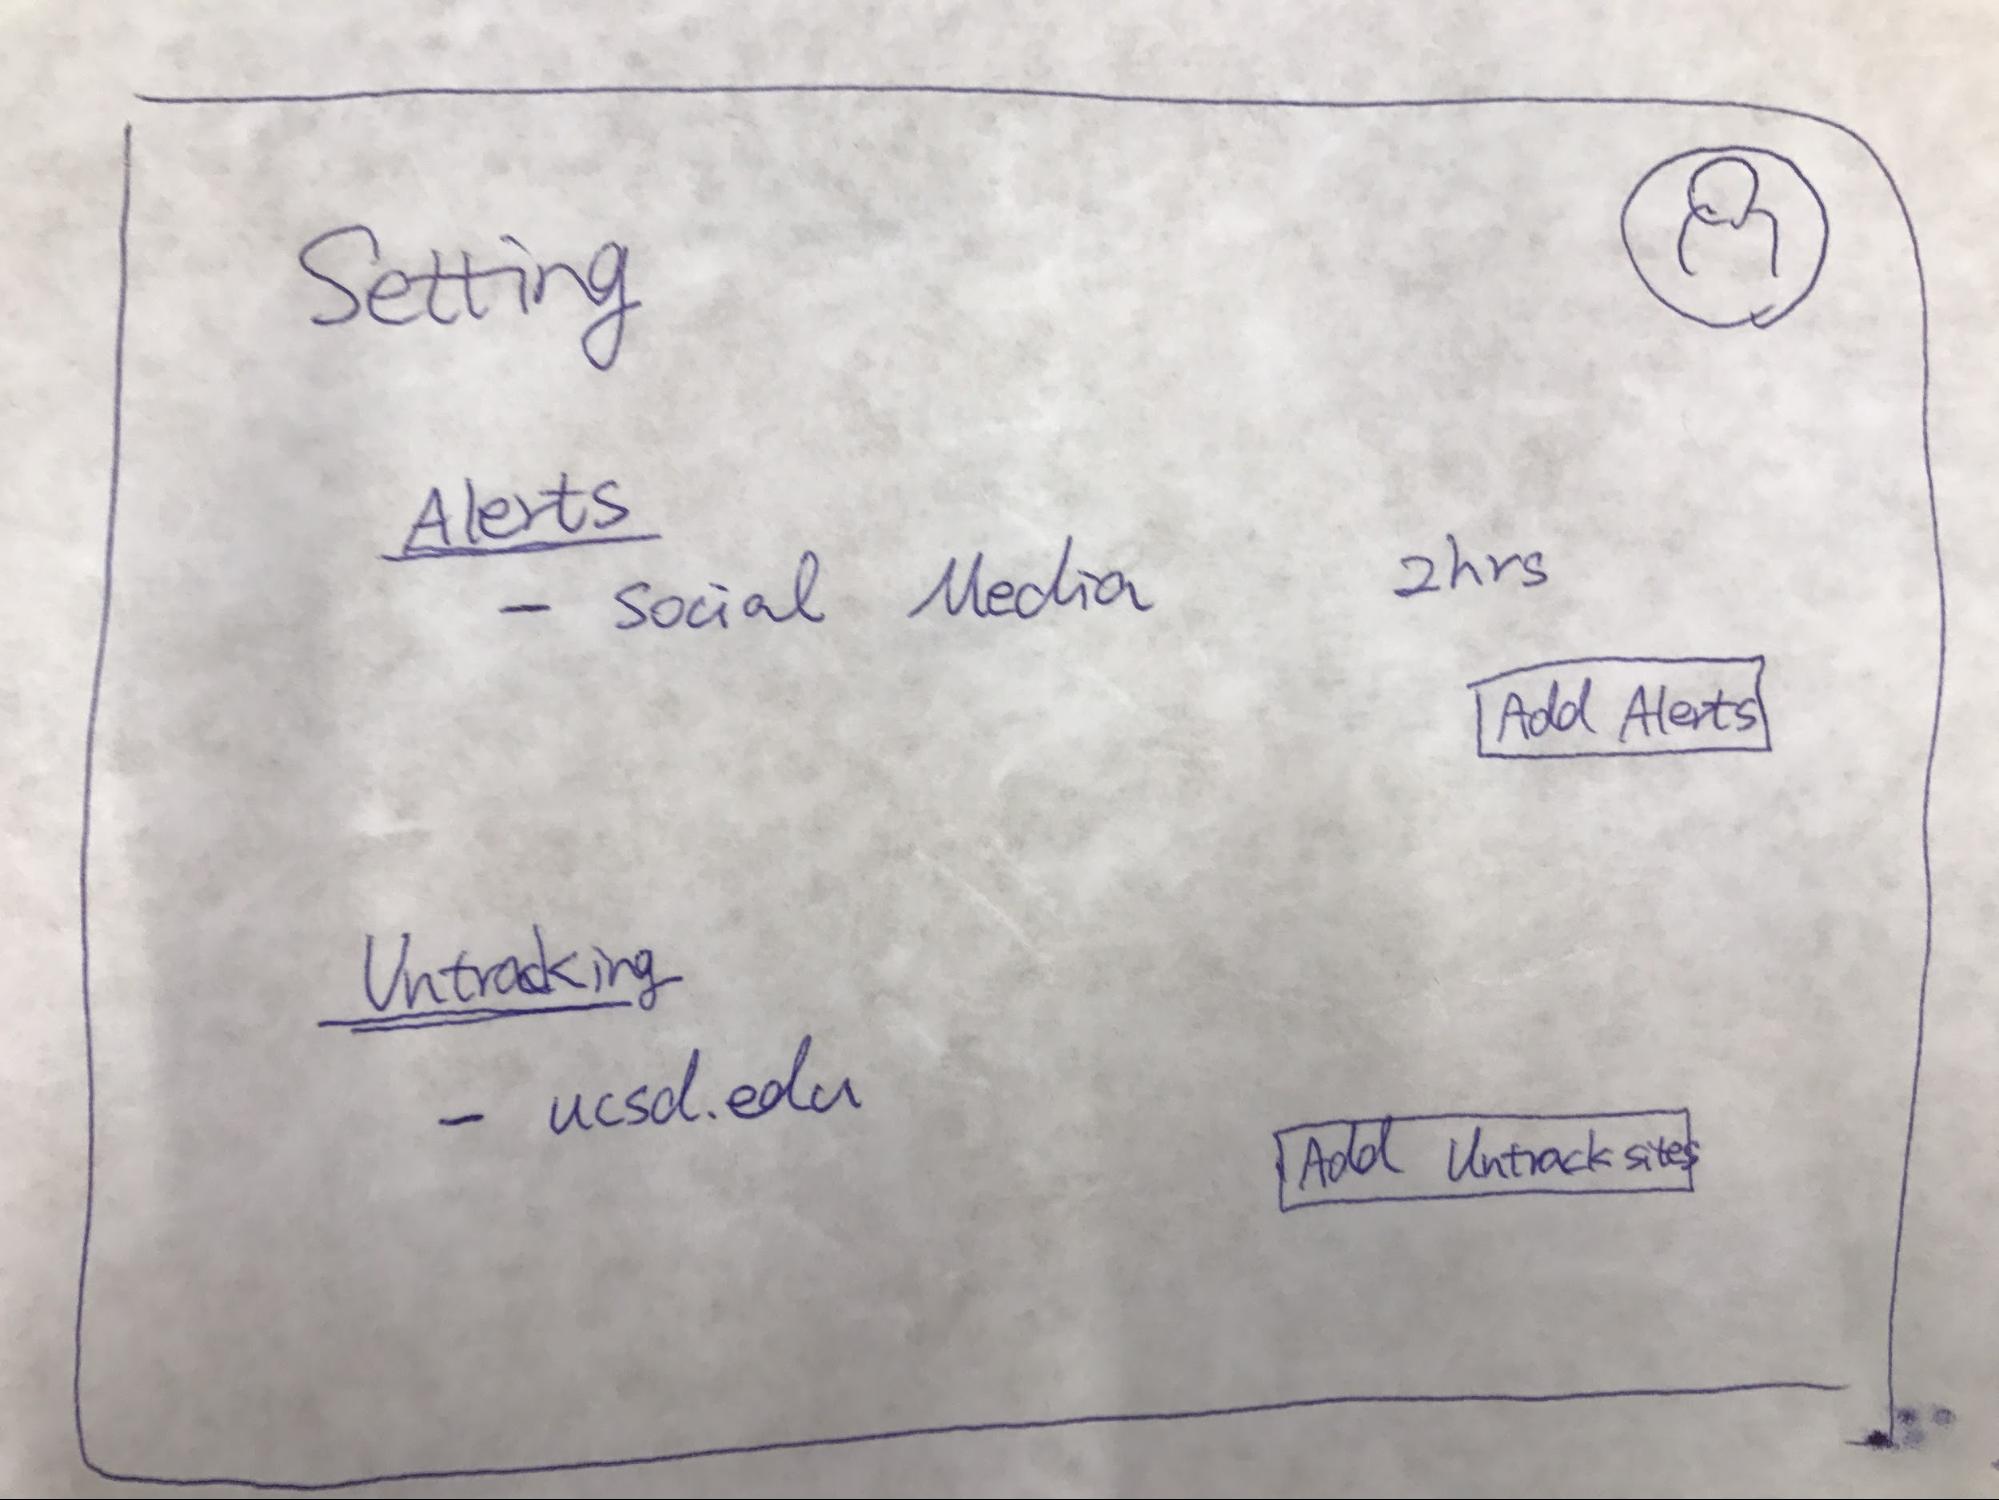 Setting
Alerts
- Social Media 2hrs
Add Alerts
Untracking
- ucsd.edu
Add Untrack sites